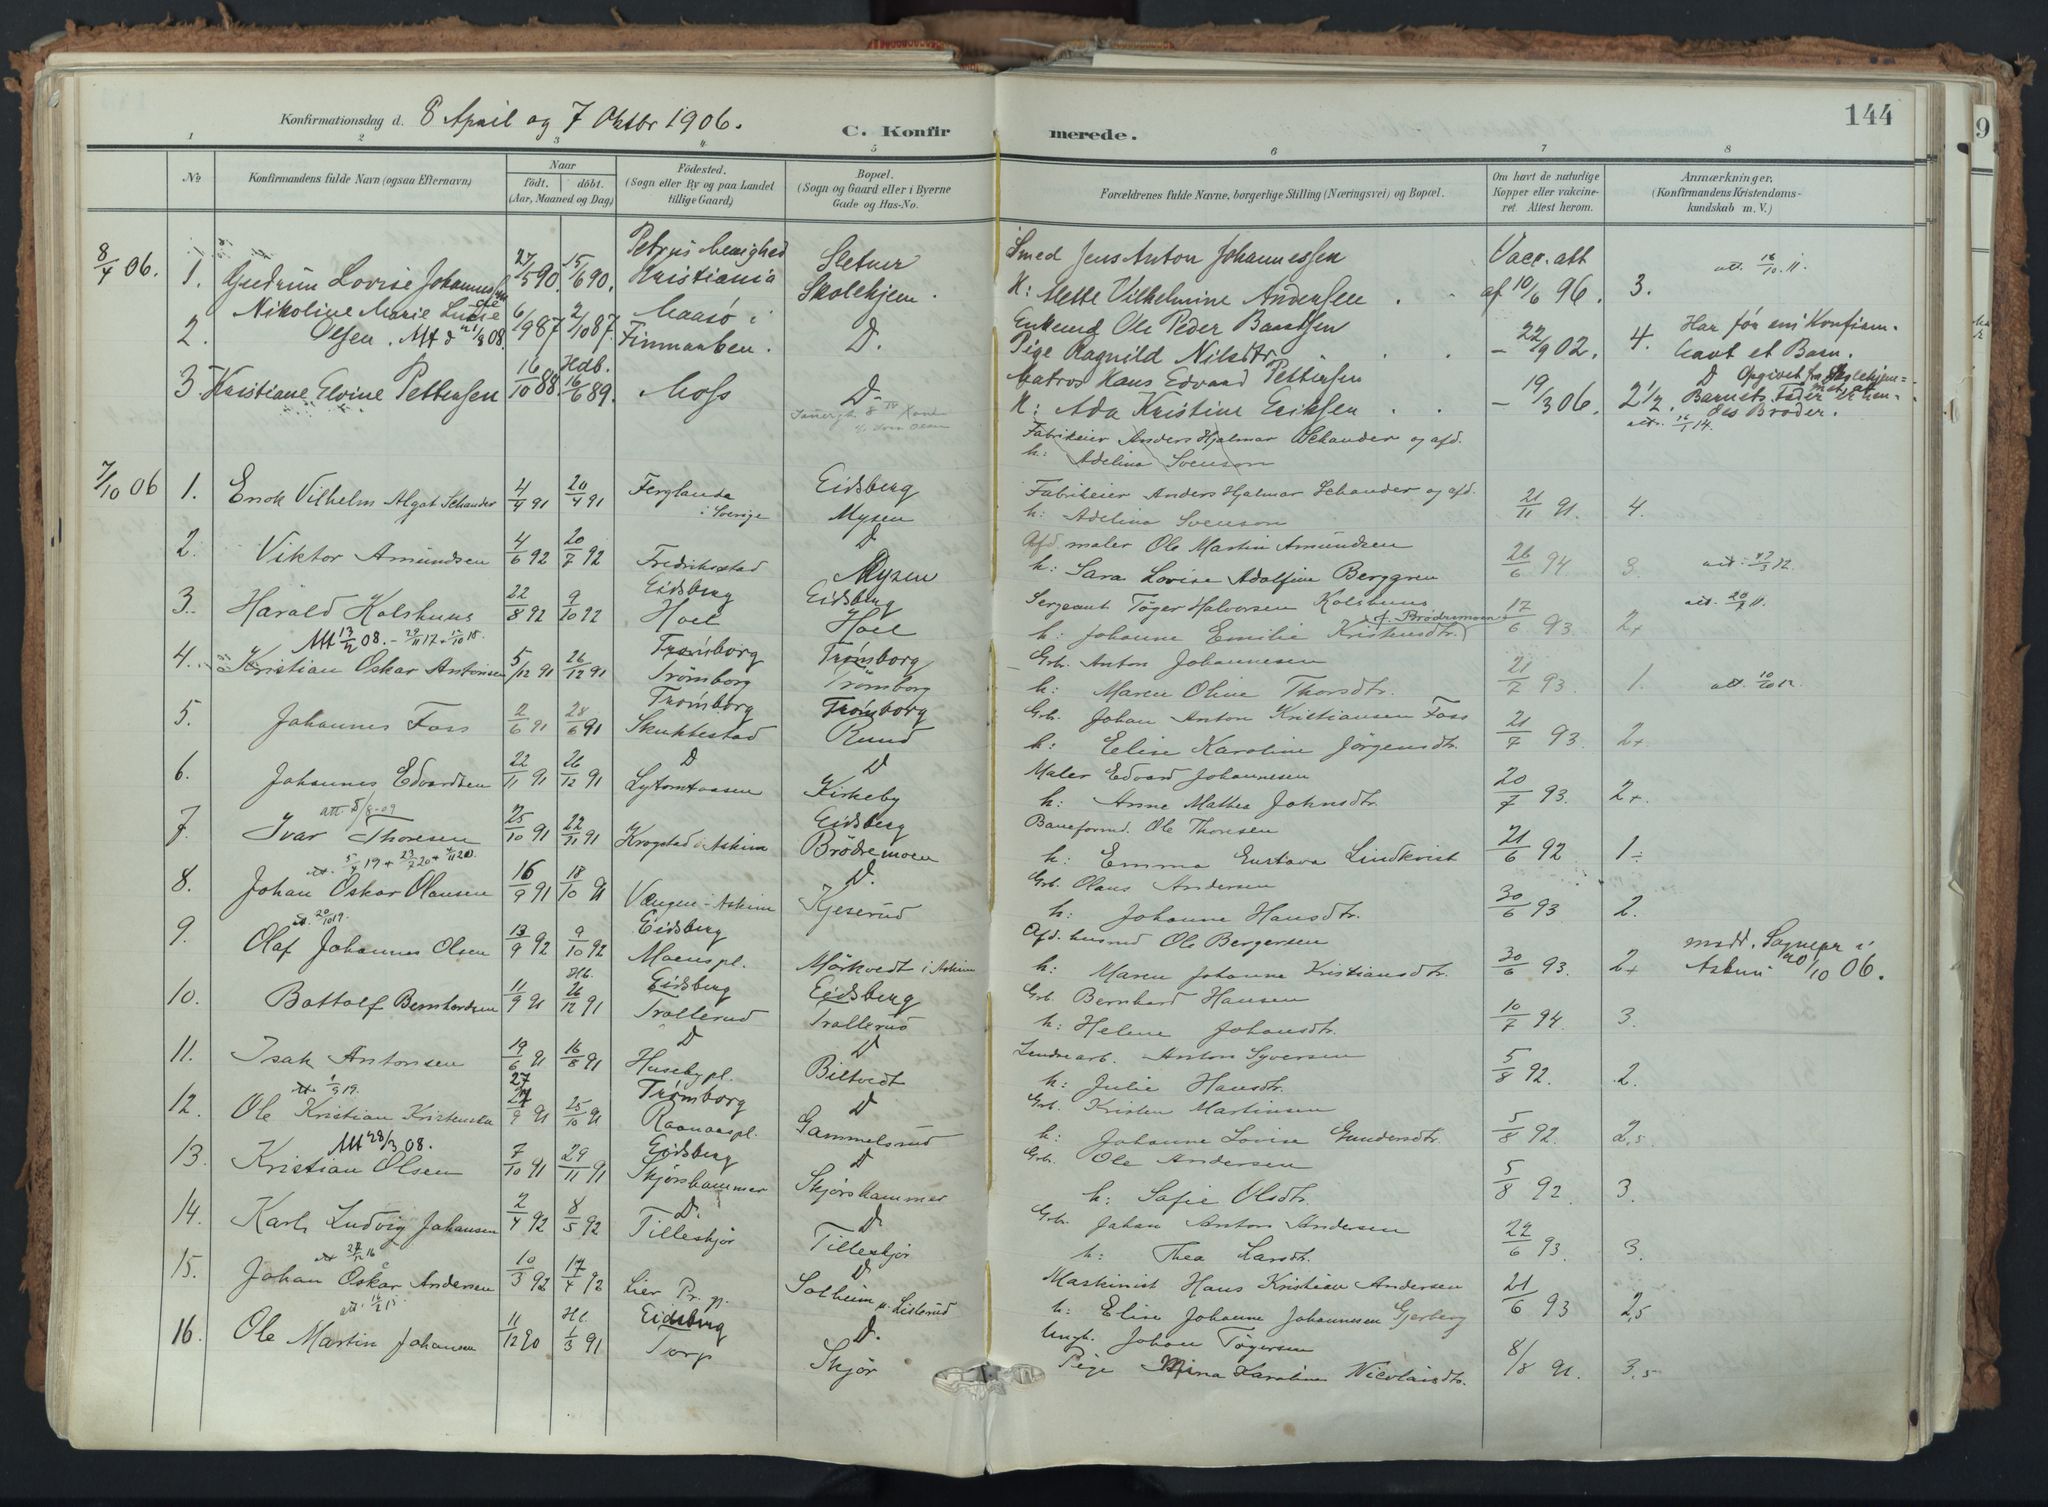 144
Konfirmationsdag d. 8 April og 7 Oktbr 1906.
C. Konfirmerede.
1 2 3 4 5 6 7 8
No
Konfirmandens fulde Navn (ogsaa Efternavn)
Naar
födt. döbt.
(Aar, Maaned og Dag)
Födested.
(Sogn eller By og paa Landet
tillige Gaard)
Bopæl.
(Sogn og Gaard eller i Byerne
Gade og Hus-No.
Forældrenes fulde Navne, borgerlige Stilling (Næringsvei) og Bopæl.
Om havt de naturlige
Kopper eller vakcine-
ret. Attest herom.
Anmærkninger.
(Konfirmandens Kristendoms-
kundskab m. V.)
8/4 06.
1. Gudrun Lovise Johannes 27/5 90. 15/6 90. Petrus Menighed Kristiania Sletner Skolehjem.
Smed Jens Anton Johannessen
K: Mette Vilhelmine Andersen
Vacc. att af 10/6 96. 3. att. 16/10 11.
2. Nikoline Marie Lucie Olsen. Att d 21/3 08. 6/1 87 2/10 87. Maasö i Finmarken. D.
Enkemd Ole Peder Baardsen
Pige Ragnild Nilsdtr
- 22/9 02. 4. Har før sin Konfirm. havt et Barn.
3. Kristiane Elvine Pettersen 16/10 88. Hdb. 16/6 89. Moss D.
Matros Hans Edvard Pettersen
K: Ada Kristine Eriksen
- 19/3 06. 2 1/2. D Opgivet fra Skolehjemmet, at Barnets Fader er hendes Broder.
att. 16/1 14.
Fabrikeier Anders Hjalmar Schander og afd.
h: Adelina Svenson
7/10 06
1. Enok Vilhelm Algot Schander 4/4 91 20/4 91 Ferglanda i Sverige Eidsberg Mysen
Fabrikeier Anders Hjalmar Schander og afd.
h: Adelina Svenson
21/11 91. 4.
2. Viktor Amundsen 4/6 92 20/7 92 Fredrikstad D Mysen
Afd. maler Ole Martin Amundsen
h: Sara Lovise Adolfine Berggren
26/6 94 3.
3. Harald Kolshuus 22/8 92 9/10 92 Eidsberg Hoel Eidsberg Hoel
Sergeant Töger Halvorsen Kolshuus
h: Johanne Emilie Kristensdtr. f. Brødremoen
17/6 93 2+ att. 20/2 11.
Att 13/2 08.
4. Kristian Oskar Antonsen 5/12 91 26/12 91 Trømborg Trömborg Trømborg Trömborg
Grb. Anton Johannesen
h: Maren Oline Thorsdtr.
21/7 93 1. att. 10/10 12.
5. Johannes Foss 2/6 91 28/6 91 Trømborg Skuktestad Trømborg Rund
Grb. Johan Anton Kristiansen Foss
h: Elise Karoline Jörgensdtr.
21/7 93. 2+
6. Johannes Edvardsen 22/11 91 26/12 91 D D Kirkeby
Maler Edvard Johannesen
h: Anne Mathea Johnsdtr.
20/7 93. 2+.
att. 5/8-09
7. Ivar Thoresen 25/10 91 22/11 91 Krogstad i Askim Eidsberg Brödremoen
Baneformd. Ole Thoresen
h: Emma Gustava Lindkvist
21/6 92 1÷
att. 5/4 19 + 23/2 20 + 4/11 20.
8. Johan Oskar Olausen 16/9 91 18/10 91 Vængen - Askim D. Kjeserud
Grb. Olaus Andersen
h: Johanne Hansdtr.
30/6 93 2.
att. 20/10 19.
9. Olaf Johannes Olsen 13/9 92 9/10 92 Eidsberg Moenspl. Mörkvedt i Askim
Afd. husmd Ole Bergersen
h: Maren Johanne Kristiansdtr.
30/6 93. 2+ medd. Sognepr i Askim 20/10 06.
10. Bottolf Bernhardsen 11/9 91 Hb. 26/12 91 Eidsberg Trollerud Eidsberg Trollerud
Grb. Bernhard Hansen
h: Helene Johansdtr.
10/7 94. 3.
11. Isak Antonsen 19/6 91 16/8 91 D Husebypl. D Biltvedt
Lendearb. Anton Syversen
h: Julie Hansdtr.
5/8 92. 2.
att. 1/9 19.
12. Ole Kristian Kristensen 27/9 91 25/10 91 Trømborg Raanaaspl. D Gammelsrud
Grb. Kristen Martinsen
h: Johanne Lovise Gundersdtr.
5/8 92. 2,5
Att 28/3 08.
13. Kristian Olsen 7/10 91 29/11 91 Eidsberg Skjørshammer D Skjørshammer
Grb. Ole Andersen
h: Sofie Olsdtr.
5/8 92. 3.
14. Karl Ludvig Johansen 2/4 92 8/5 92 D. Tilleskjør D. Tilleskjør
Grb. Johan Anton Andersen
h: Thea Larsdtr.
22/6 93. 3.
15. Johan Oskar Andersen 10/3 92 17/4 92 Lier Pr.gj. D Solheim u. Listerud
Maskinist Hans Kristian Andersen
h: Elise Johanne Johannesen Gjerberg
21/6 93 2,5
att. 16/2 15.
16. Ole Martin Johansen 11/12 90 1/3 91 Eidsberg Torp D. Skjør
Ungk. Johan Tögersen
Pige Mina Karoline Nicolaisdtr.
8/8 91. 3,5